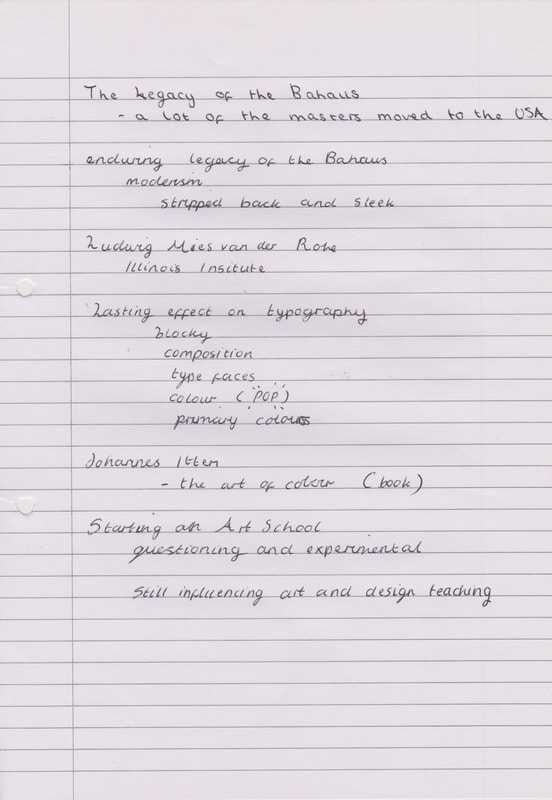 The Legacy of the Bahaus
- a lot of the masters moved to the USA
enduring legacy of the Bahaus
moderism
stripped back and sleek
Ludwig Mies van der Rohe
Illinois Insitute
Lasting effect on typography
blocky
composition
type faces
colour ("POP")
primary colours
Johannes Itten
- the art of colour (book)
Starting an Art School
questioning and experimental
Still influencing art and design teaching